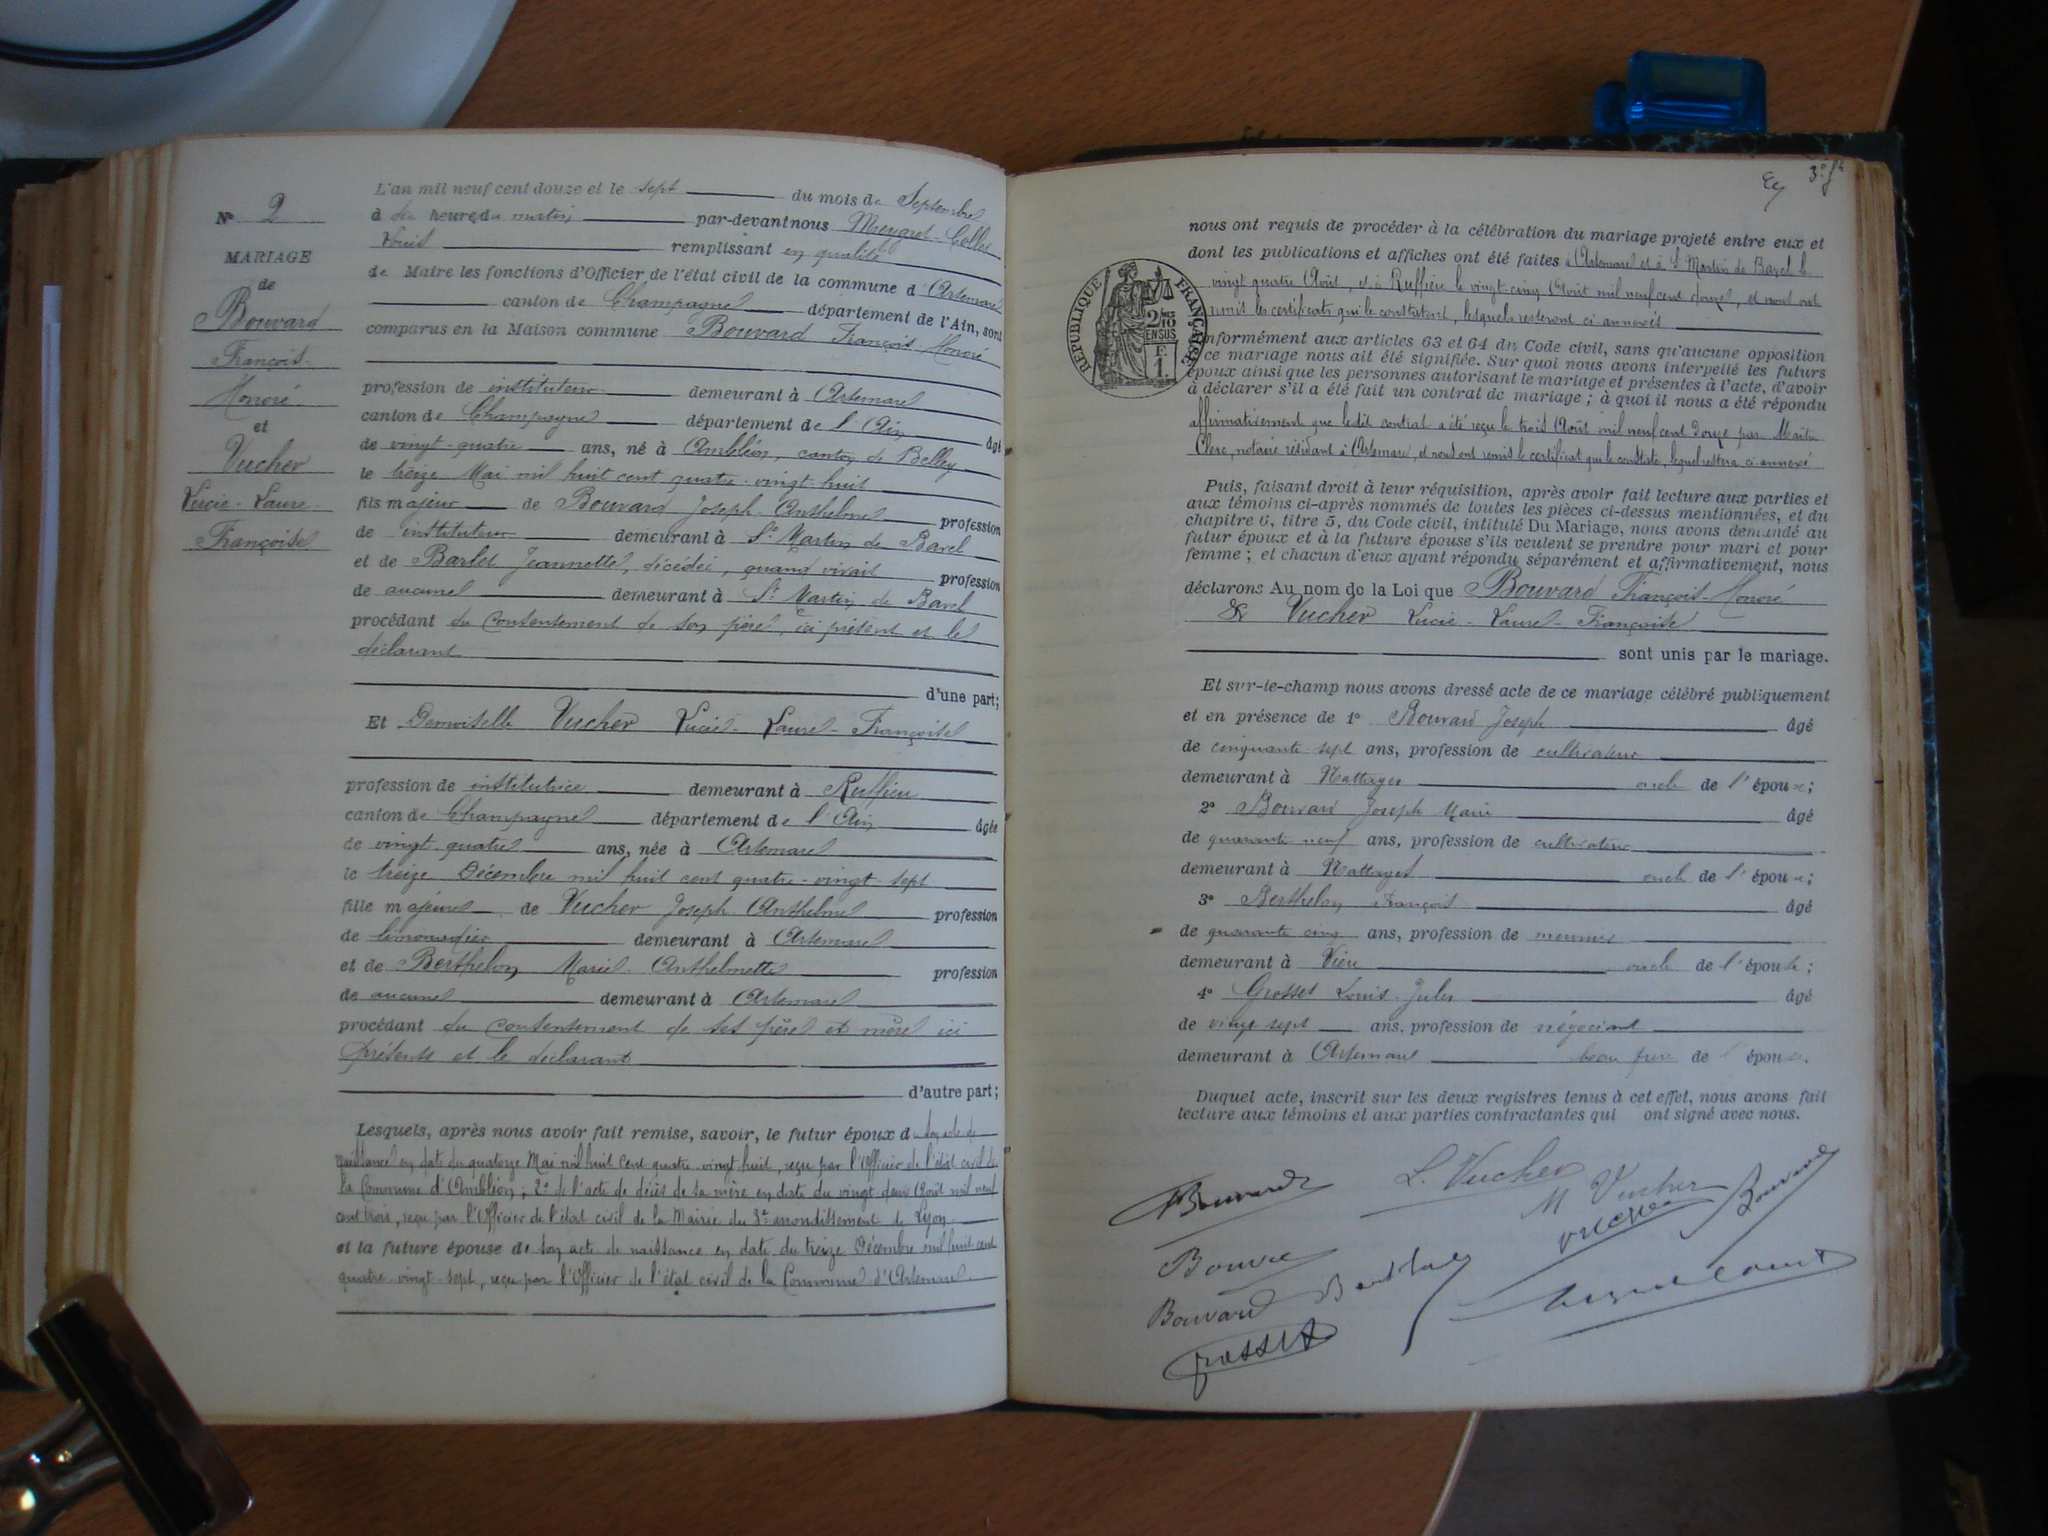 N° 2
MARIAGE
de
Bouvard
François-
Honoré
et
Vucher
Lucie-Laure-
Françoise
L'an mil neuf cent douze et le sept du mois de Septembre
à dix heures du matin par-devant nous Meygret-Collet
Louis remplissant en qualité
de Maire les fonctions d'Officier de l'état civil de la commune d'Artemare
canton de Champagne département de l'Ain, sont
comparus en la Maison commune Bouvard François-Honoré
profession de instituteur demeurant à Artemare
canton de Champagne département de l'Ain âgé
de vingt-quatre ans, né à Ambléon, canton de Belley
le treize Mai mil huit cent quatre-vingt-huit
fils majeur de Bouvard Joseph-Anthelme profession
de instituteur demeurant à St Martin de Bavel
et de Barlet Jeannette, décédée, quand vivait profession
de aucune demeurant à St Martin de Bavel
procédant du consentement de son père, ici présent et le
déclarant
d'une part;
Et Demoiselle Vucher Lucie-Laure-Françoise
profession de institutrice demeurant à Ruffieu
canton de Champagne département de l'Ain âgée
de vingt-quatre ans, née à Artemare
le treize Décembre mil huit cent quatre-vingt-sept
fille majeure de Vucher Joseph-Anthelme profession
de limonadier demeurant à Artemare
et de Berthelon Marie-Anthelmette profession
de aucune demeurant à Artemare
procédant du consentement de ses père et mère ici
présents et le déclarant
d'autre part;
Lesquels, après nous avoir fait remise, savoir, le futur époux de son acte de
naissance en date du quatorze Mai mil huit cent quatre-vingt-huit, reçu par l'Officier de l'état civil de
la Commune d'Ambléon; 2° de l'acte de décès de sa mère en date du vingt deux Août mil neuf
cent trois, reçu par l'Officier de l'état civil de la Mairie du 3e arrondissement de Lyon
et la future épouse de son acte de naissance en date du treize Décembre mil huit cent
quatre-vingt-sept, reçu par l'Officier de l'état civil de la Commune d'Artemare.
nous ont requis de procéder à la célébration du mariage projeté entre eux et
dont les publications et affiches ont été faites à Artemare et à St Martin de Bavel le
vingt quatre Août, et à Ruffieu le vingt-cinq Août mil neuf cent douze, et nous ont
remis les certificats qui le constatent, lesquels resteront ci annexés
RÉPUBLIQUE FRANÇAISE
2/10 EN SUS
F. 1.
conformément aux articles 63 et 64 du Code civil, sans qu'aucune opposition
à ce mariage nous ait été signifiée. Sur quoi nous avons interpellé les futurs
époux ainsi que les personnes autorisant le mariage et présentes à l'acte, d'avoir
à déclarer s'il a été fait un contrat de mariage; à quoi il nous a été répondu
affirmativement que ledit contrat a été reçu le trois Août mil neuf cent douze par Maître
Clerc, notaire résidant à Artemare, et nous ont remis le certificat qui le constate, lequel restera ci annexé
Puis, faisant droit à leur réquisition, après avoir fait lecture aux parties et
aux témoins ci-après nommés de toutes les pièces ci-dessus mentionnées, et du
chapitre 6, titre 5, du Code civil, intitulé Du Mariage, nous avons demandé au
futur époux et à la future épouse s'ils veulent se prendre pour mari et pour
femme; et chacun d'eux ayant répondu séparément et affirmativement, nous
déclarons Au nom de la Loi que Bouvard François-Honoré
& Vucher Lucie-Laure-Françoise
sont unis par le mariage.
Et sur-le-champ nous avons dressé acte de ce mariage célébré publiquement
et en présence de 1° Bouvard Joseph âgé
de cinquante sept ans, profession de cultivateur
demeurant à Nattages oncle de l'époux;
2° Bouvard Joseph Marie âgé
de quarante neuf ans, profession de cultivateur
demeurant à Nattages oncle de l'époux;
3° Berthelon François âgé
de quarante cinq ans, profession de meunier
demeurant à Vieu oncle de l'épouse;
4° Grosset Louis-Jules âgé
de vingt sept ans, profession de négociant
demeurant à Artemare beau frère de l'épouse.
Duquel acte, inscrit sur les deux registres tenus à cet effet, nous avons fait
lecture aux témoins et aux parties contractantes qui ont signé avec nous.
Bouvard L. Vucher M Vucher
Vucher Bouvard
Bouvard
Bouvard
Grosset